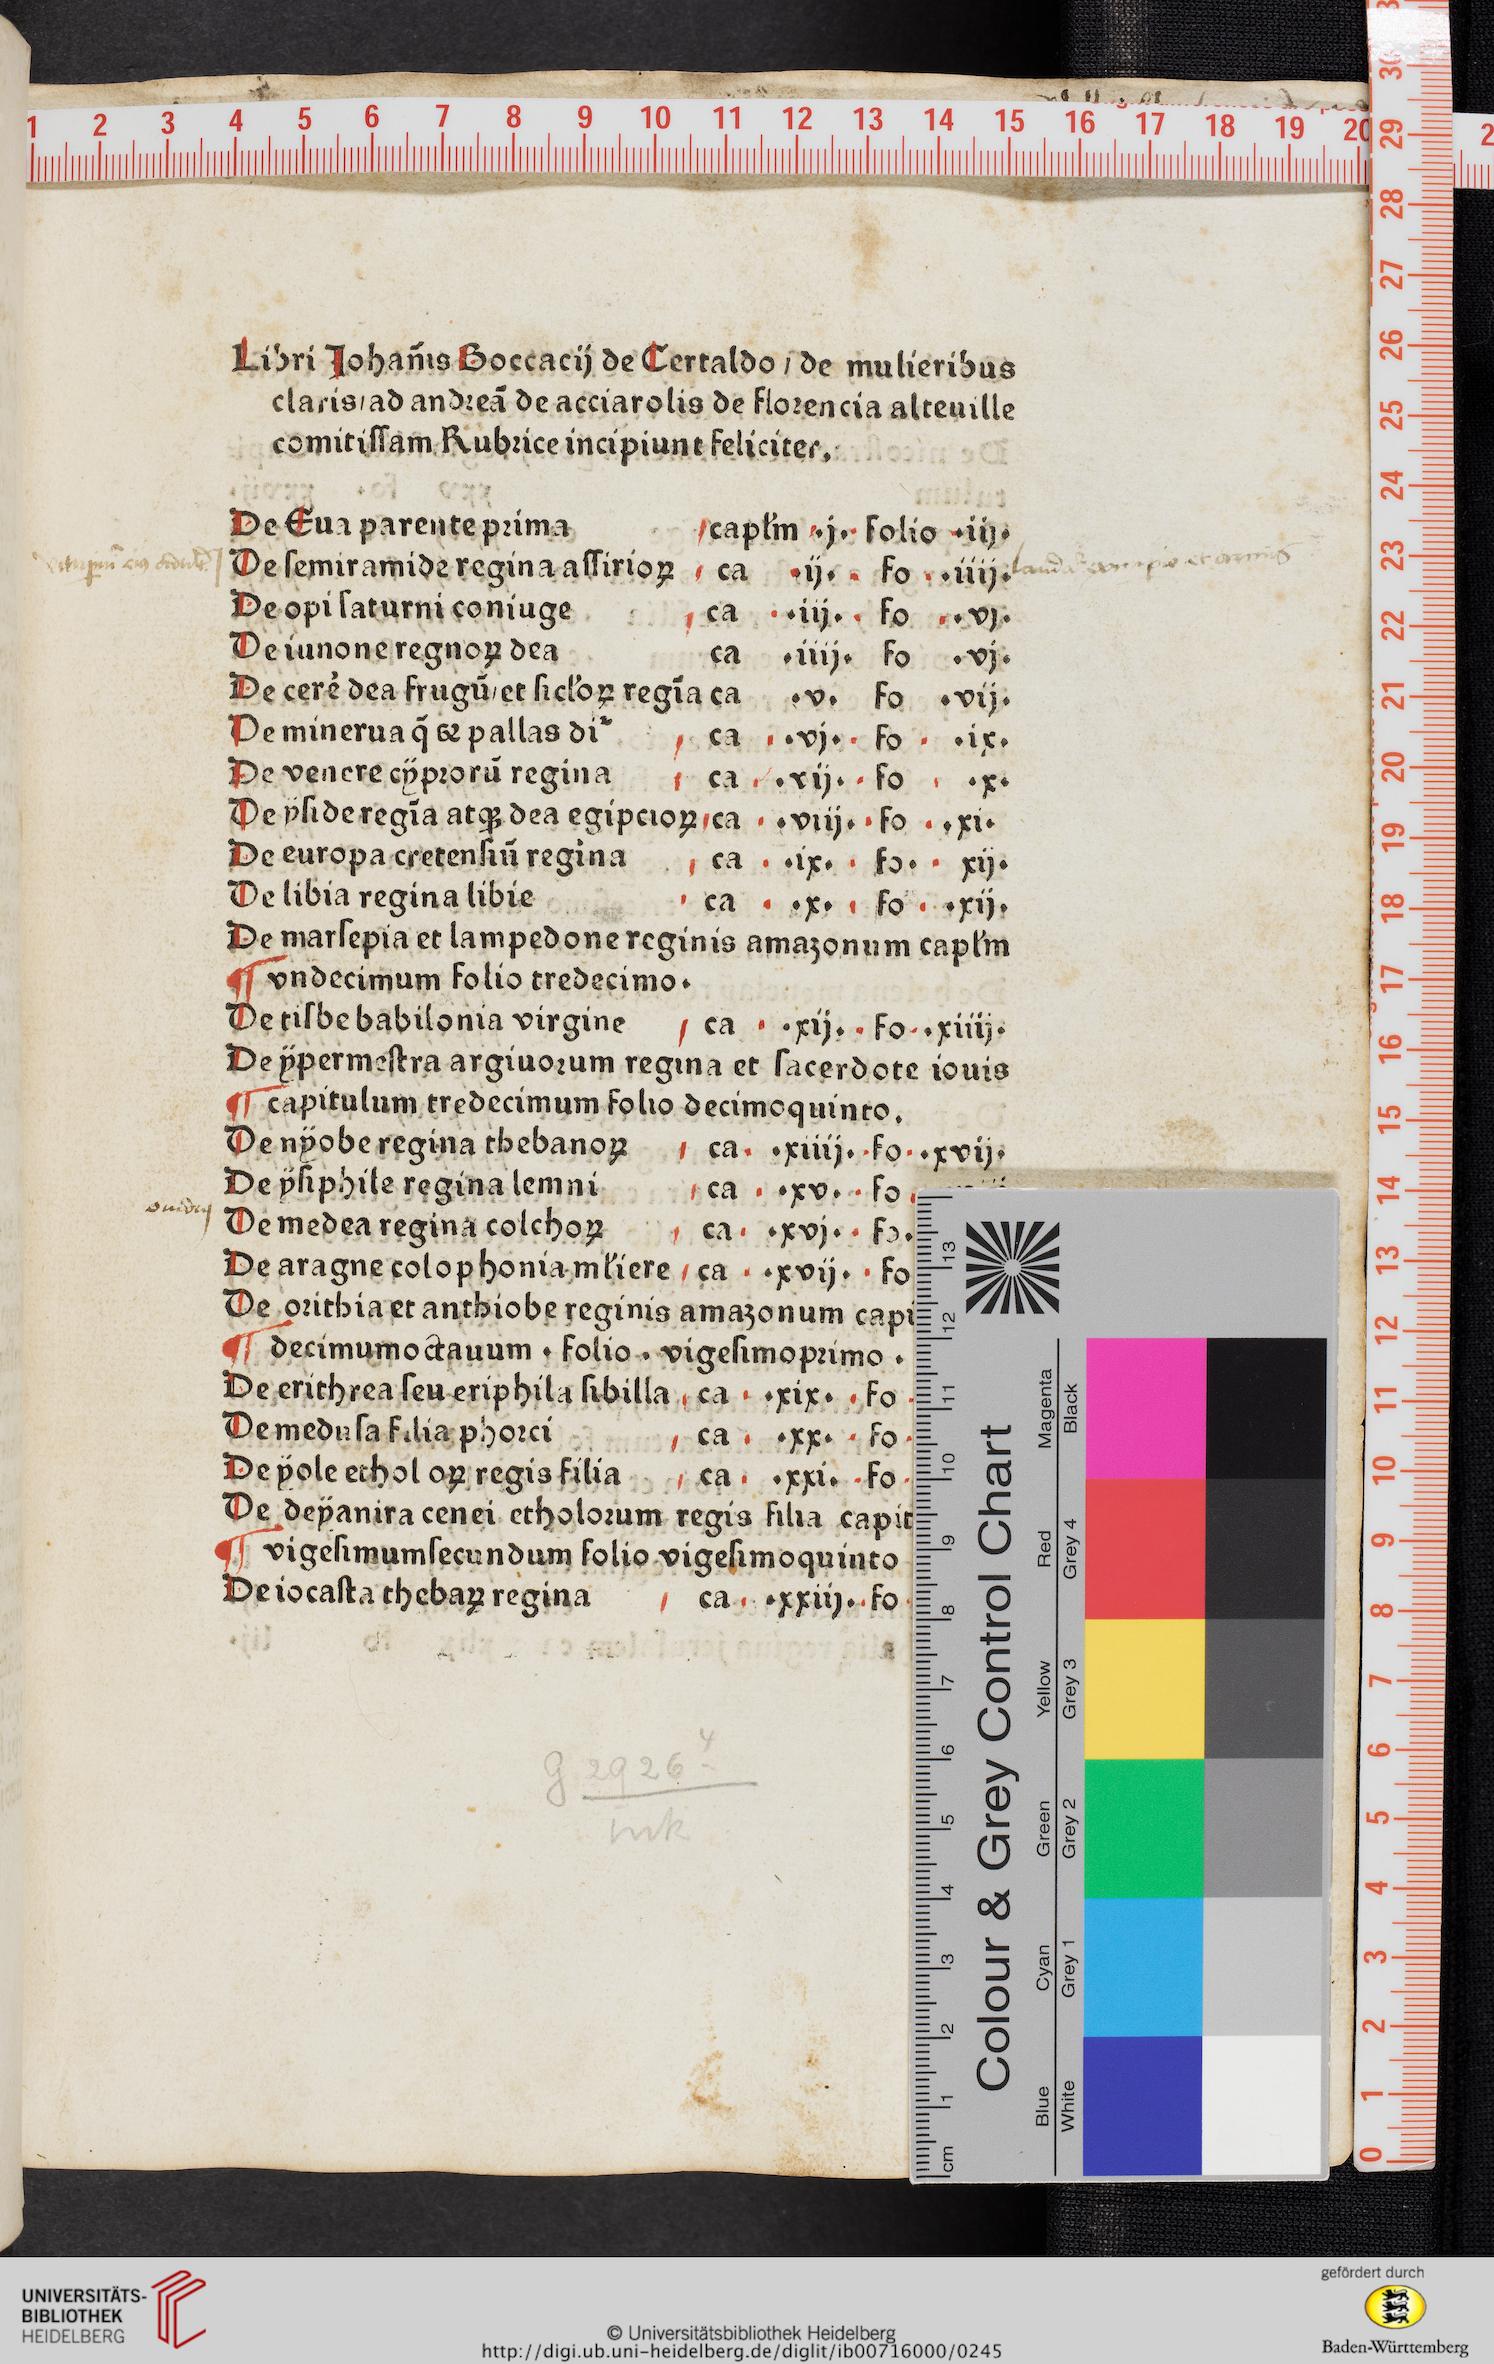 Libri Johan̄is Boccacij de Certaldo / de mulieribus
claris / ad andreā de acciarolis de florencia alteuille
comitissam Rubrice incipiunt feliciter.
De Eua parente prima / capl'm .j. folio .iij.
De semiramide regina assirioꝝ / ca .ij. fo .iiij.
De opi saturni coniuge / ca .iij. fo .vj.
De iunone regnoꝝ dea ca .iiij. fo .vj.
De cereẻ dea frugū / et sicl'oꝝ regīa ca .v. fo .vij.
De minerua q̄ ⁊ pallas di² / ca .vj. fo .ix.
De venere cÿprorū regina / ca .vij. fo .x.
De ÿside regīa atqꝫ dea egipcioꝝ / ca .viij. fo .xi.
De europa cretensiū regina / ca .ix. fo. xij.
De libia regina libie / ca .x. fo .xij.
De marsepia et lampedone reginis amazonum capl'm
¶ vndecimum folio tredecimo.
De tisbe babilonia virgine / ca .xij. fo .xiiij.
De ÿpermestra argiuorum regina et sacerdote iouis
¶ capitulum tredecimum folio decimoquinto.
De nÿobe regina thebanoꝝ / ca .xiiij. fo .xvij.
De ÿsiphile regina lemni / ca .xv. fo
ouidij
De medea regina colchoꝝ / ca .xvj. fo.
De aragne colophonia ml'iere / ca .xvij. fo
De orithia et anthiobe reginis amazonum capi
¶ decimumoctauum . folio . vigesimoprimo .
De erithrea seu eriphila sibilla / ca .xix. fo
De medusa filia phorci / ca .xx. fo
De ÿole ethol oꝝ regis filia / ca .xxi. fo
De deÿanira cenei etholorum regis filia capit
¶ vigesimumsecundum folio vigesimoquinto
De iocasta thebaꝝ regina / ca .xxiij. fo
g 2926 4
ink
1 2 3 4 5 6 7 8 9 10 11 12 13 14 15 16 17 18 19 20 2
30 29 28 27 26 25 24 23 22 21 20 19 18 17 16 15 14 13 12 11 10 9 8 7 6 5 4 3 2 1 0
13 12 11 10 9 8 7 6 5 4 3 2 1 cm
Colour & Grey Control Chart
Blue Cyan Green Yellow Red Magenta
White Grey 1 Grey 2 Grey 3 Grey 4 Black
UNIVERSITÄTS-
BIBLIOTHEK
HEIDELBERG
© Universitätsbibliothek Heidelberg
http://digi.ub.uni-heidelberg.de/diglit/ib00716000/0245
gefördert durch
Baden-Württemberg